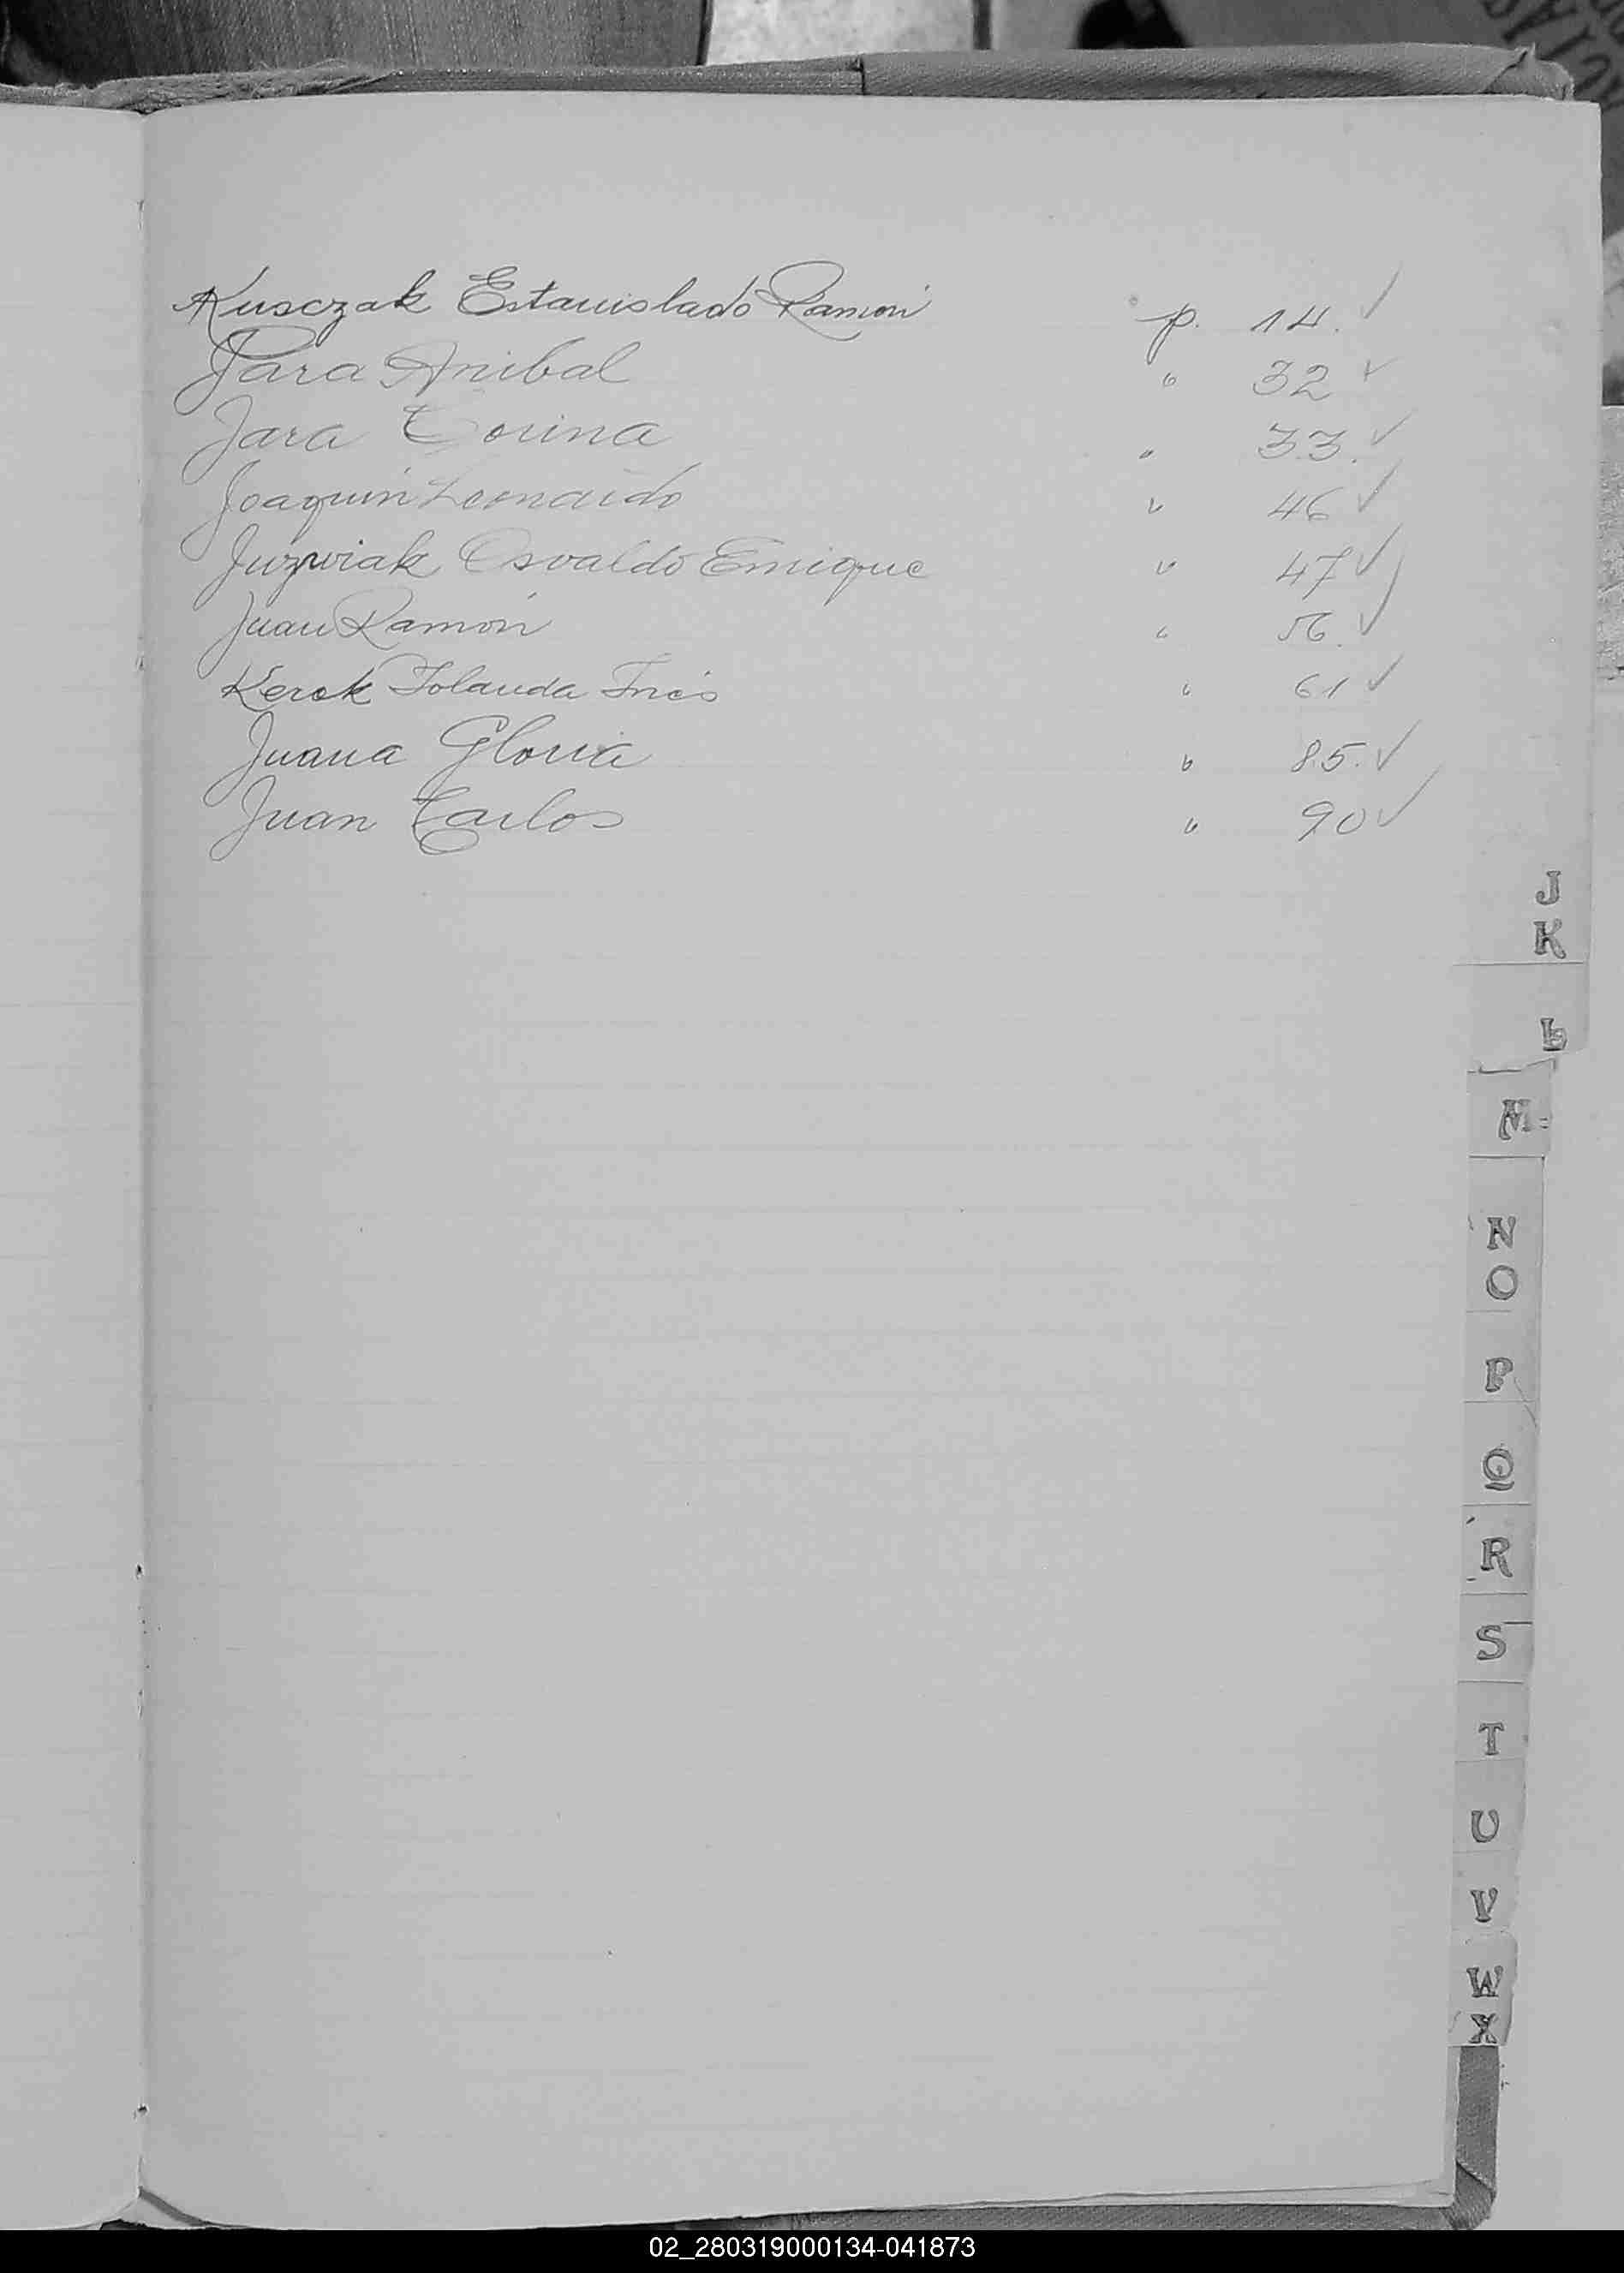 Kusczak Estanislado Ramón p. 14. ✓
Jara Anibal " 32 ✓
Jara Corina " 33. ✓
Joaquin Leonardo " 46 ✓
Juzwiak Osvaldo Enrique " 47 ✓
Juan Ramón " 56. ✓
Kerek Iolanda Inés " 61 ✓
Juana Gloria " 85. ✓
Juan Carlos " 90 ✓
J
K
L
M
N
O
P
Q
R
S
T
U
V
W
X
02_280319000134-041873